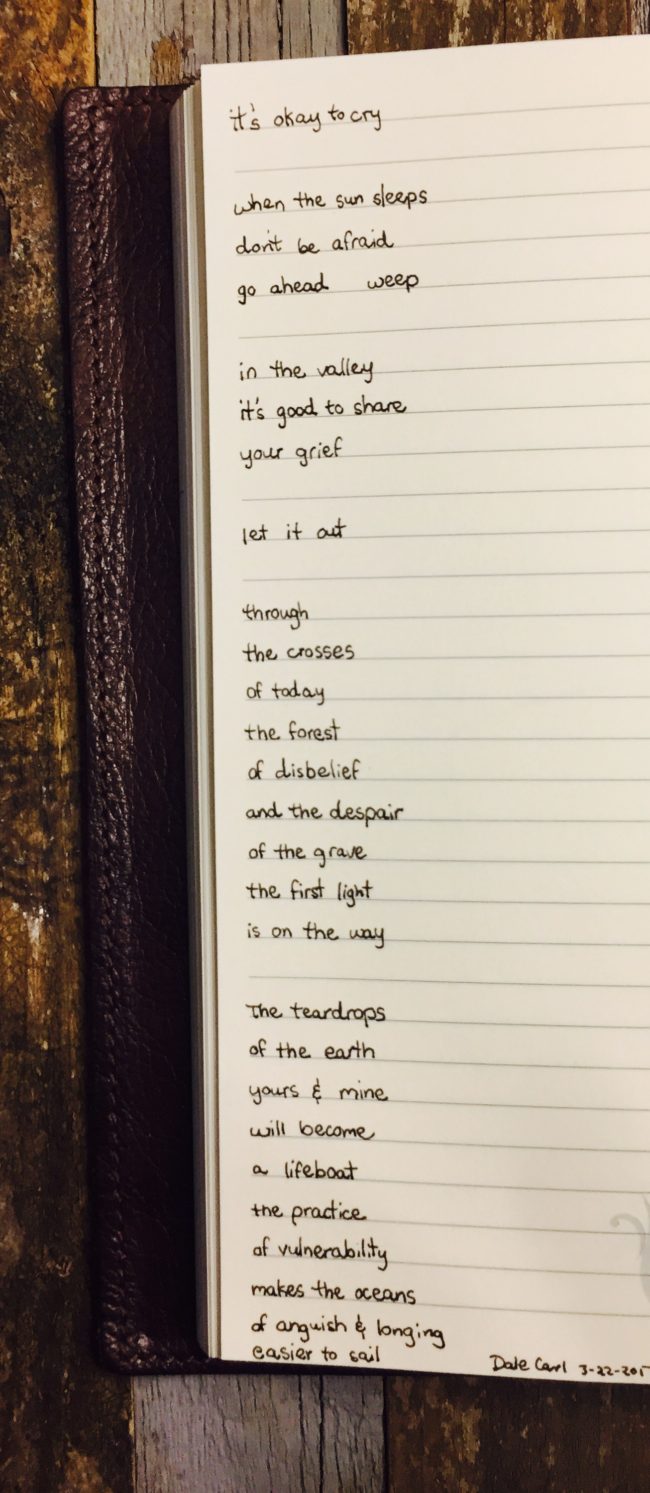 it's okay to cry
when the sun sleeps
don't be afraid
go ahead weep
in the valley
it's good to share
your grief
let it out
through
the crosses
of today
the forest
of disbelief
and the despair
of the grave
the first light
is on the way
The teardrops
of the earth
yours & mine
will become
a lifeboat
the practice
of vulnerability
makes the oceans
of anguish & longing
easier to sail
Dale Carl 3-22-201